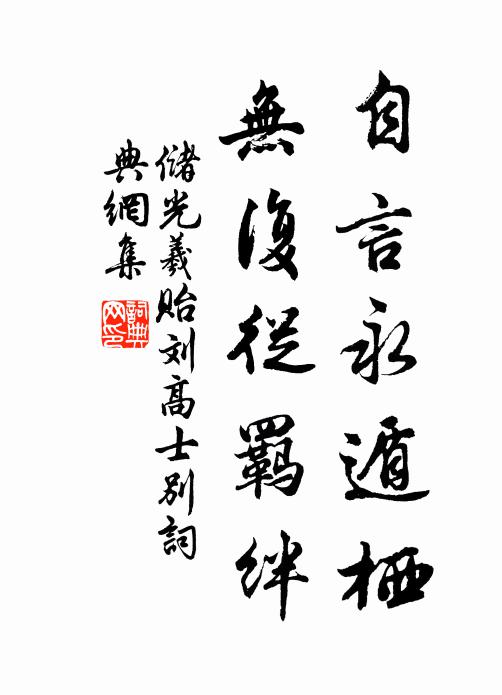 自言永遁栖
無復從羈絆
儲光羲貽刘高士別詞
典網集
詞典網印